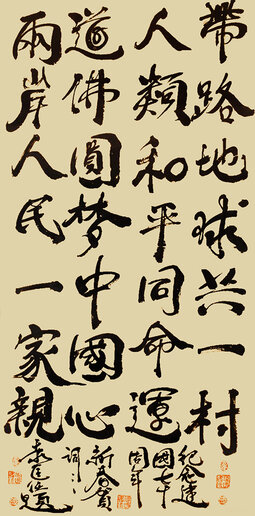 帶路地球共一村
人類和平同命運
道佛圓梦中國心
兩岸人民一家親
紀念建
國七十
周年
新春賀
詞